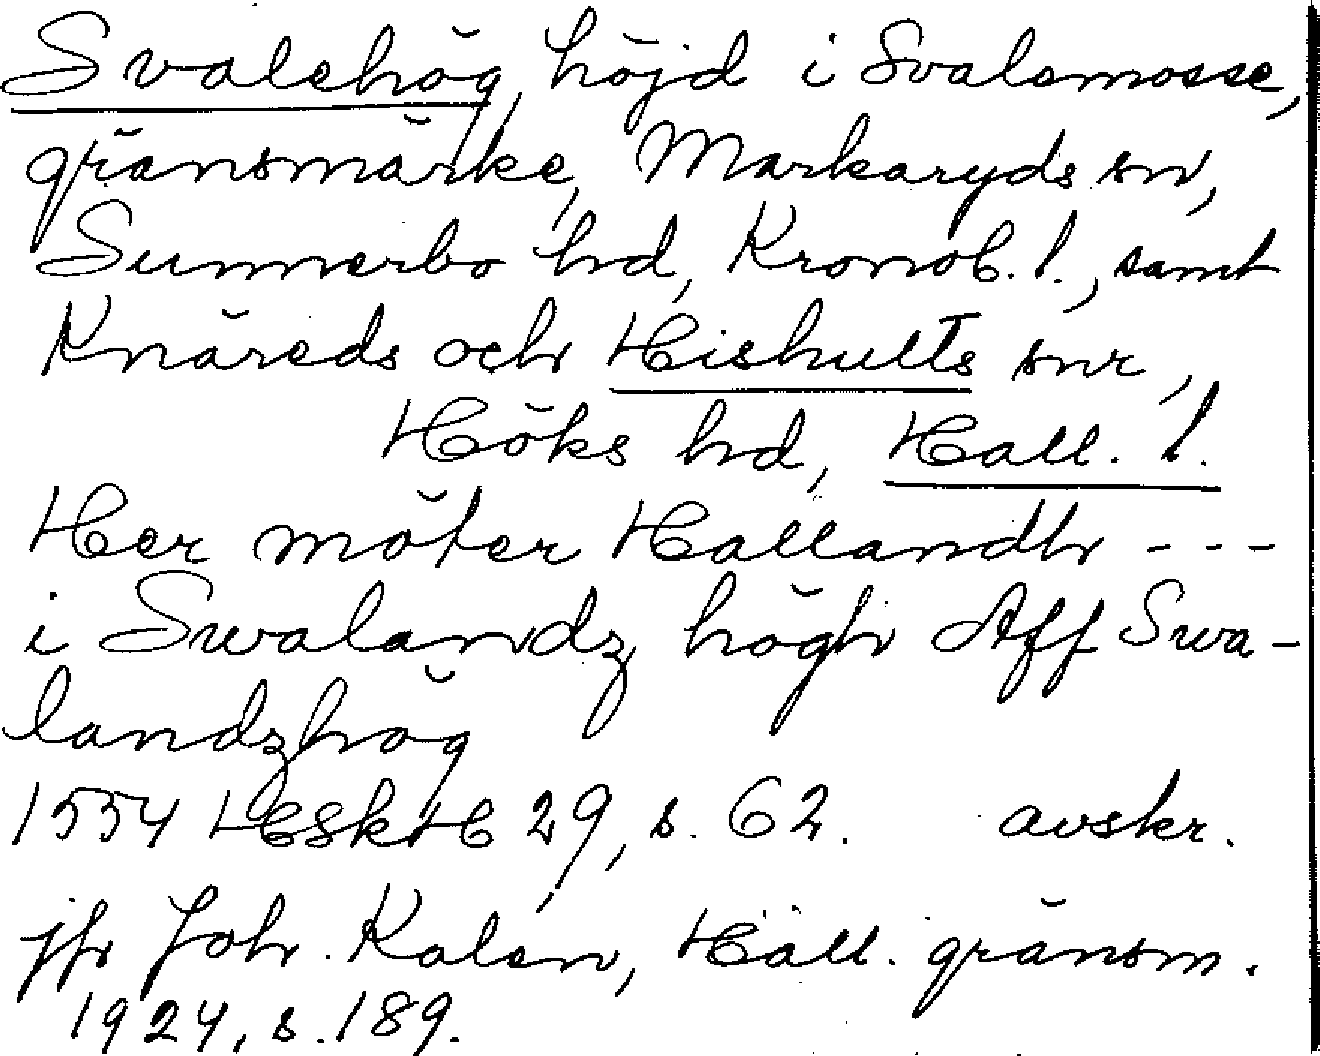 Svalehög, höjd i Svalemosse,
gränsmärke, Markaryds sn,
Sunnerbo hd, Kronob. l., samt
Knäreds och Hishults snr,
Höks hd, Hall. l.
Her möter Hallandh - - -
i Swalandz högh Aff Swa-
landzhög
1554 HSkH 29, s. 62. avskr.
jfr Joh. Kalen, Hall. gränsm.
1924, s. 189.